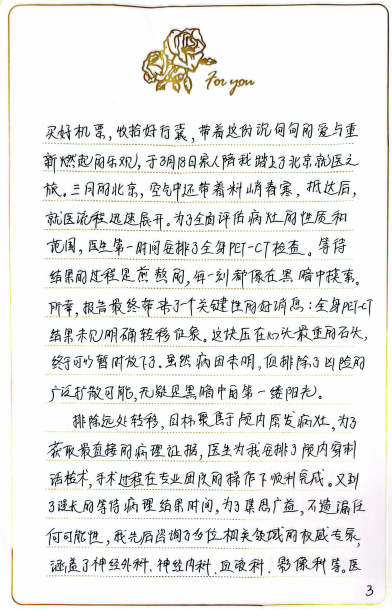 For you
买好机票，收拾好行囊，带着这份沉甸甸的爱与重
新燃起的乐观，于3月18日家人陪我踏上了北京就医之
旅。三月的北京，空气中还带着料峭春寒，抵达后，
就医流程迅速展开。为了全面评估病灶的性质和
范围，医生第一时间安排了全身PET-CT检查。等待
结果的过程是煎熬的，每一刻都像在黑暗中摸索。
所幸，报告最终带来了一个关键性的好消息：全身PET-CT
结果未见明确转移征象。这块压在心头最重的石头，
终于可以暂时放下了。虽然病因未明，但排除了凶险的
广泛扩散可能，无疑是黑暗中的第一缕阳光。
排除远处转移，目标聚焦于颅内原发病灶，为了
获取最直接的病理证据，医生为我安排了颅内穿刺
活检术，手术过程在专业团队的操作下顺利完成。又到
了漫长的等待病理结果时间，为了集思广益，不遗漏任
何可能性，我先后咨询了多位相关领域的权威专家，
涵盖了神经外科、神经内科、血液科、影像科等。医
3